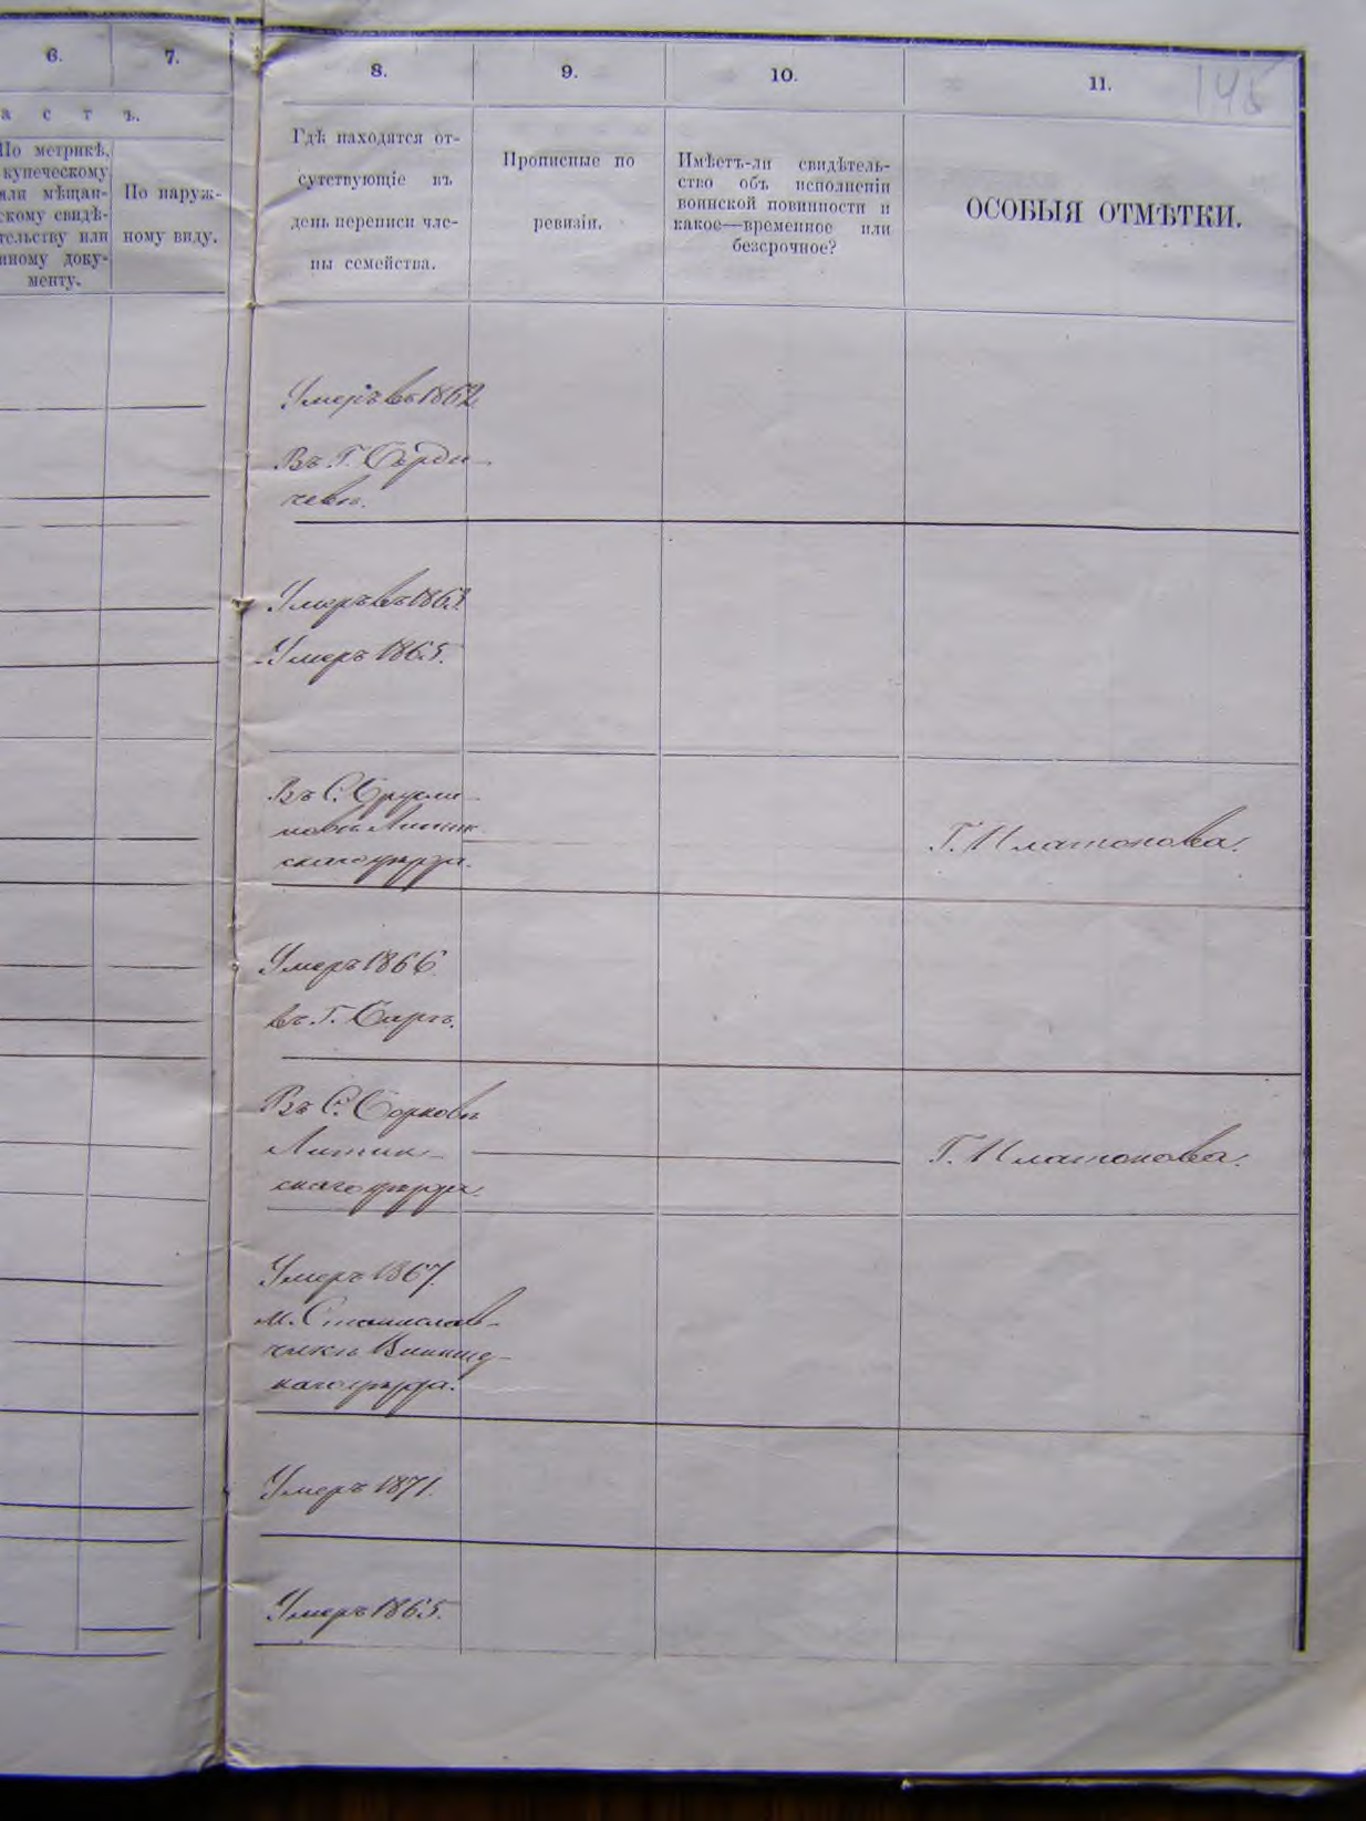 6.
7.
8.
9.
10.
11.
145
а с т ъ.
По метрикѣ,
купеческому
или мѣщан-
скому свидѣ-
тельству или
иному доку-
менту.
По наруж-
ному виду.
Гдѣ находятся от-
сутствующіе въ
день переписи чле-
ны семейства.
Прописные по
ревизіи.
Имѣетъ-ли свидѣтель-
ство объ исполненіи
воинской повинности и
какое—временное или
безсрочное?
ОСОБЫЯ ОТМѢТКИ.
Умеръ въ 1862
Въ Г. Бѣрди-
чевѣ.
Умеръ въ 1863
Умеръ 1865.
Въ С.
скаго уѣзда.
Г. Платонова.
Умеръ 1866
въ Г. Барѣ.
Въ С. Борковѣ
Литин-
скаго уѣзда.
Г. Платонова.
Умеръ 1867.
м. Станислав-
чикѣ Винниц-
каго уѣзда.
Умеръ 1871.
Умеръ 1865.